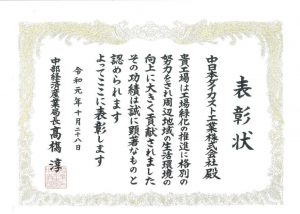 表彰状
中日本ダイカスト工業株式会社殿
貴工場は工場緑化の推進に格別の
努力をされ周辺地域の生活環境の
向上に大きく貢献されました
その功績は誠に顕著なものと
認められます
よってここに表彰します
令和元年十月二十八日
中部経済産業局長高橋淳